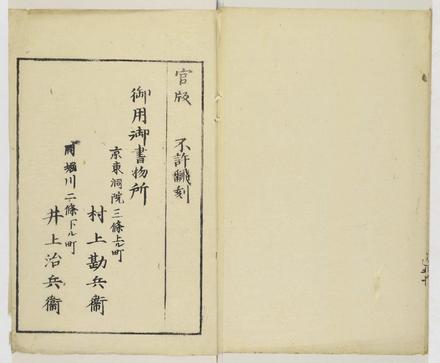 官版　不許飜刻
御用御書物所
京東洞院三條上ル町
村上勘兵衞
同堀川二條下ル町
井上治兵衞